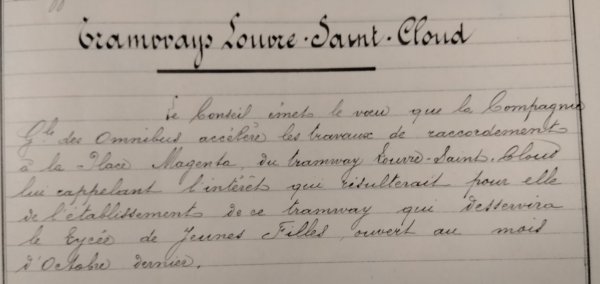 Tramways Louvre-Saint-Cloud
Le Conseil émet le vœu que la Compagnie
Gle des Omnibus accélère les travaux de raccordement
à la Place Magenta, du tramway Louvre-Saint-Cloud
lui rappelant l'intérêt qui résulterait pour elle
de l'établissement de ce tramway qui desservira
le Lycée de Jeunes Filles, ouvert au mois
d'Octobre dernier.